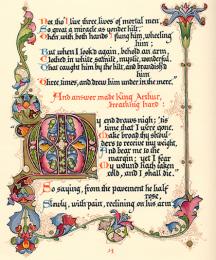 Not tho' I live three lives of mortal men,
So great a miracle as yonder hilt.
Then with both hands I flung him, wheeling
him;
But when I look'd again, behold an arm,
Clothed in white samite, mystic, wonderful,
That caught him by the hilt, and brandish'd
him
Three times, and drew him under in the mere."
And answer made King Arthur,
breathing hard:
"My end draws nigh; 'tis
time that I were gone.
Make broad thy shoul-
ders to receive my weight,
And bear me to the
margin; yet I fear
My wound hath taken
cold, and I shall die."
So saying, from the pavement he half
rose,
Slowly, with pain, reclining on his arm,